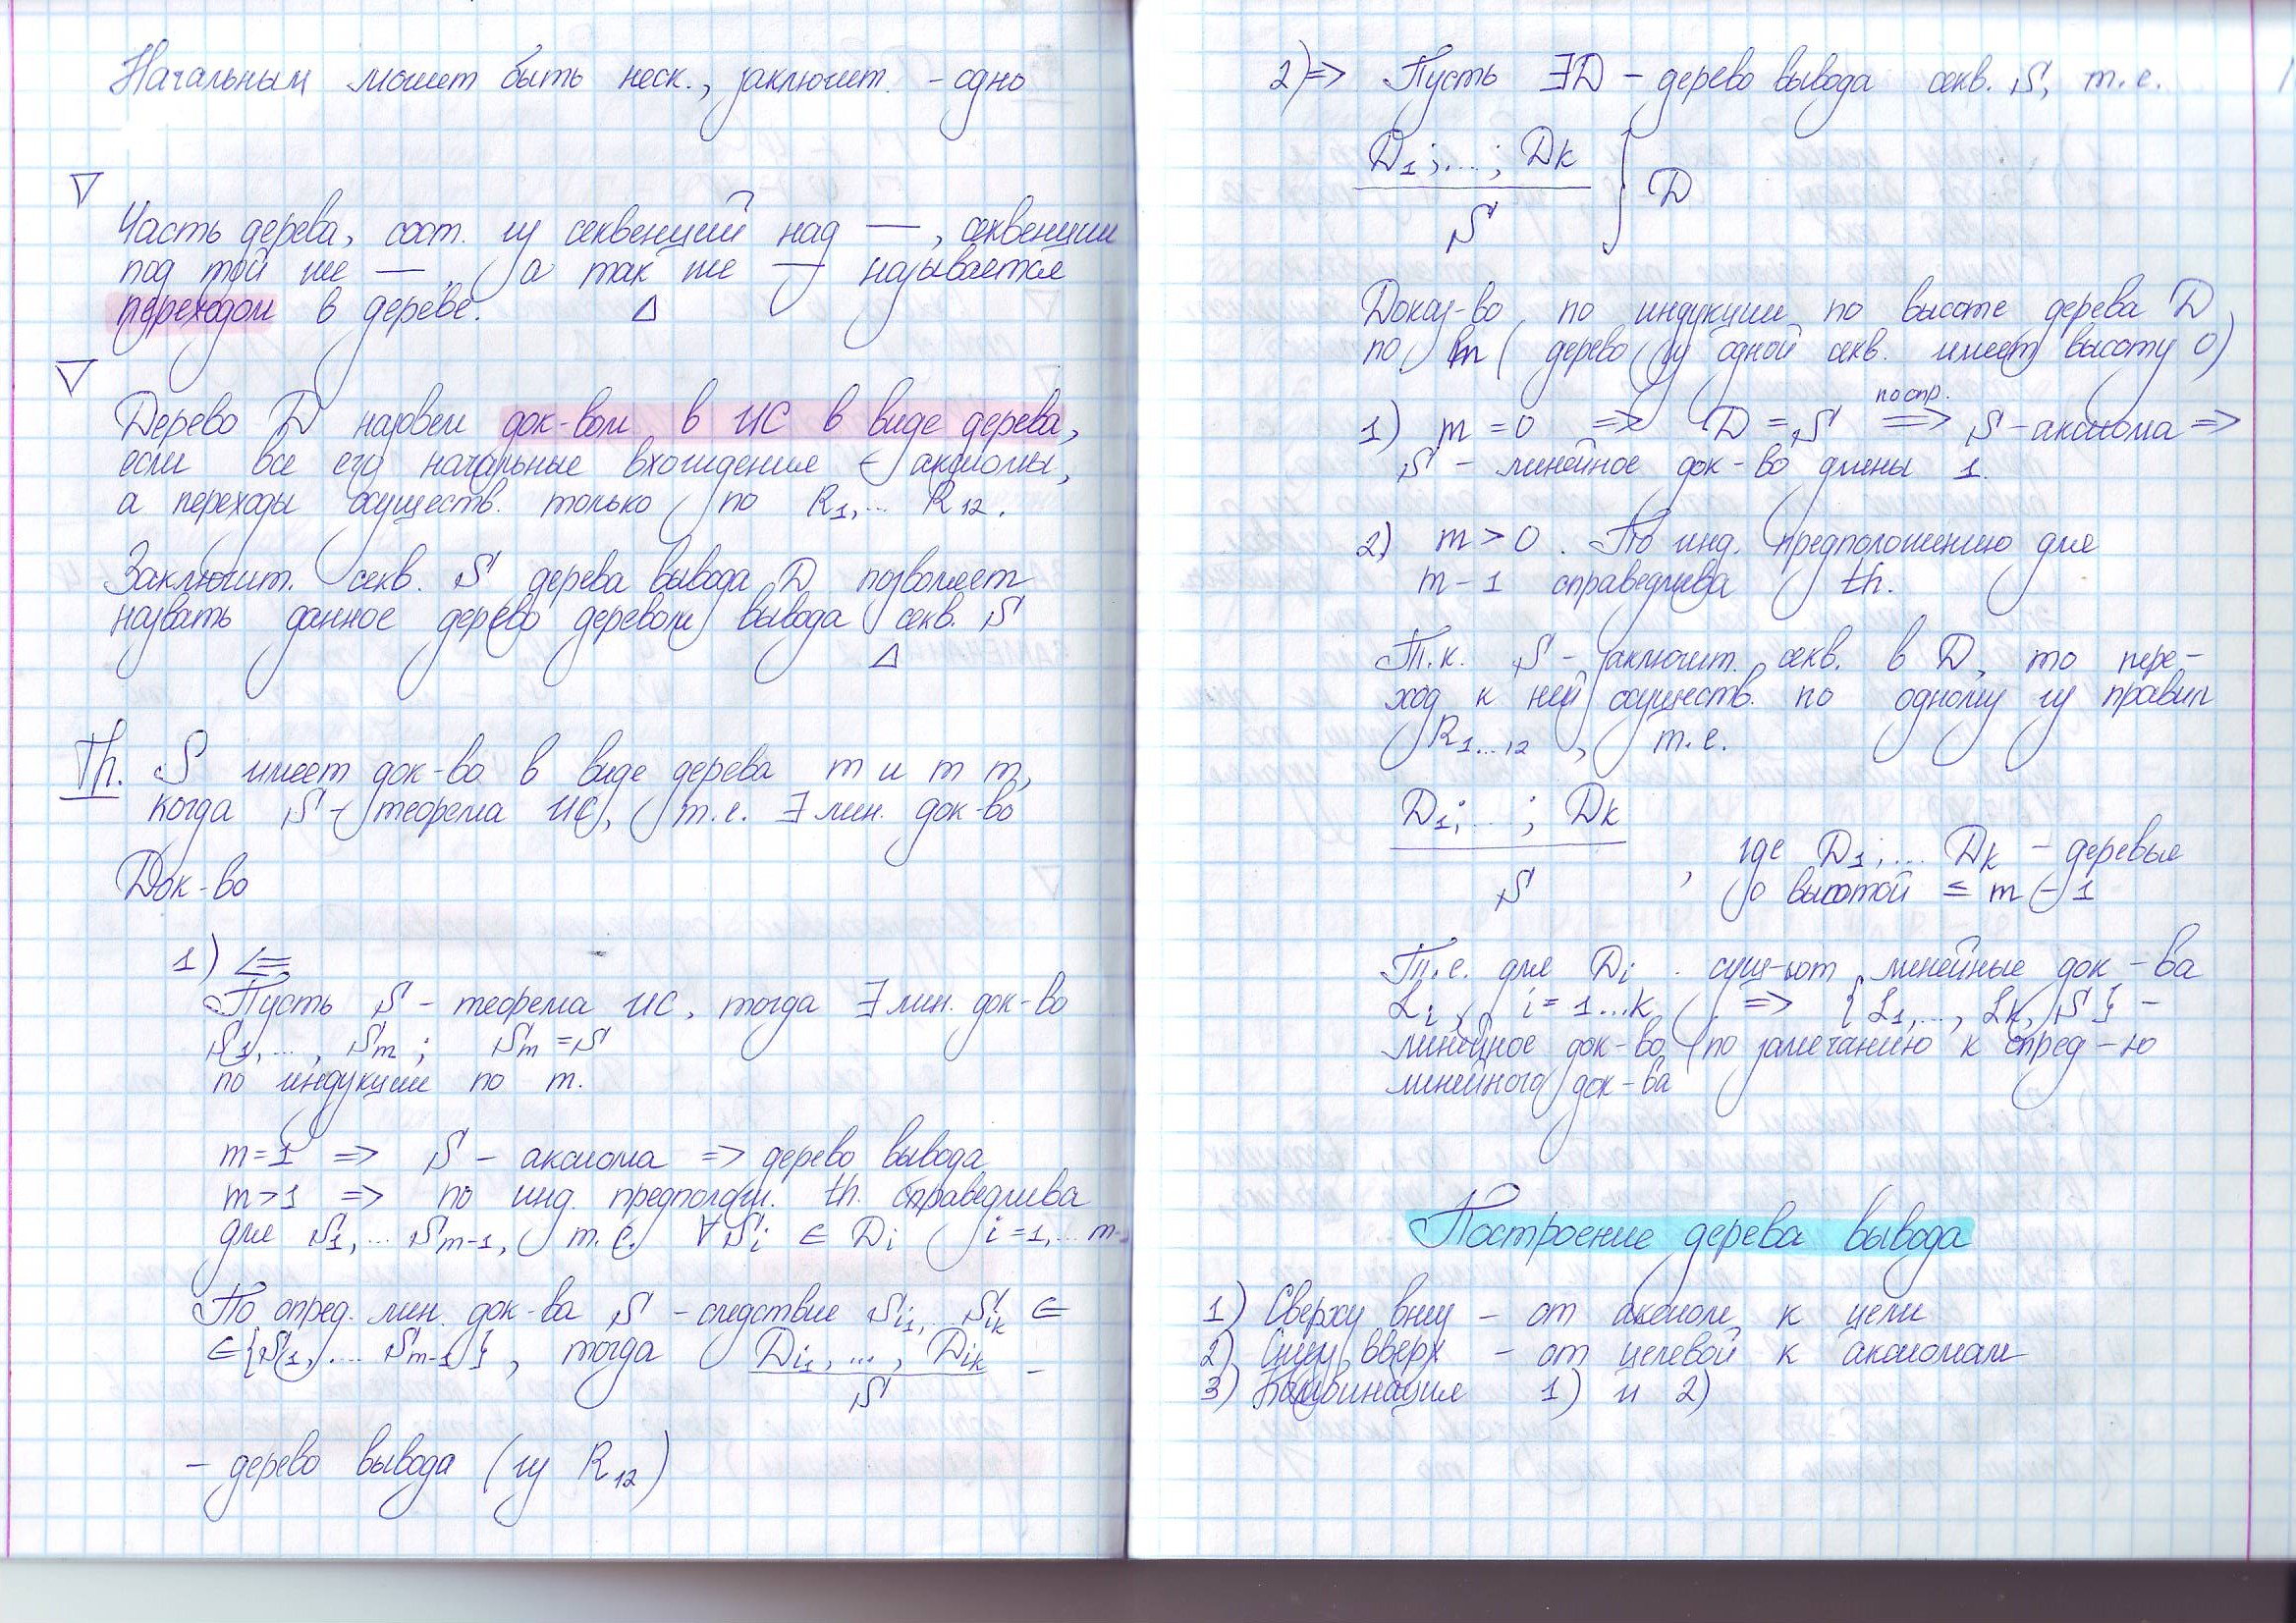 Начальных может быть неск., заключит. - одно
▽
Часть дерева, сост. из секвенций над —, секвенции
под той же —, а так же — называется
переходом в дереве. △
▽
Дерево D назовем док-вом в ИС в виде дерева,
если все его начальные вхождения ∈ аксиомы,
а переходы осуществ. только по R₁,... R₁₂.
Заключит. секв. S дерева вывода D позволяет
назвать данное дерево деревом вывода секв. S
△
Th. S имеет док-во в виде дерева т и т т,
когда S - теорема ИС, т.е. ∃ лин. док-во
Док-во
1) <=
Пусть S - теорема ИС, тогда ∃ лин. док-во
S₁,..., Sm; Sm = S
по индукции по m.
m=1 => S - аксиома => дерево вывода
m>1 => по инд. предполож. th. справедлива
для S₁,... Sm-1, т.е. ∀Si ∈ Di i=1,... m-1
По опред. лин. док-ва S - следствие Si₁,... Sik ∈
∈{S₁,... Sm-1}, тогда Di₁,..., Dik -
S
- дерево вывода (из R₁₂)
2) => Пусть ∃D - дерево вывода секв. S, т.е.
D₁;...; Dk
S
D
Докаж-во по индукции по высоте дерева D,
по m (дерево из одной секв. имеет высоту 0)
1) m = 0 => D = S постр. => S - аксиома =>
S - линейное док-во длины 1.
2) m > 0. По инд. предположению для
m-1 справедлива th.
Т.к. S - заключит. секв. в D, то пере-
ход к ней осуществ. по одному из правил
R₁...₁₂, т.е.
D₁;...; Dk
S
, где D₁;... Dk - деревья
с высотой ≤ m-1
Т.е. для Di сущ-ют линейные док-ва
Li, i=1...k => {L₁,..., Lk, S} -
линейное док-во по замечанию к опред-ю
линейного док-ва
Построение дерева вывода
1) Сверху вниз - от аксиом к цели
2) Снизу вверх - от целевой к аксиомам
3) Комбинация 1) и 2)